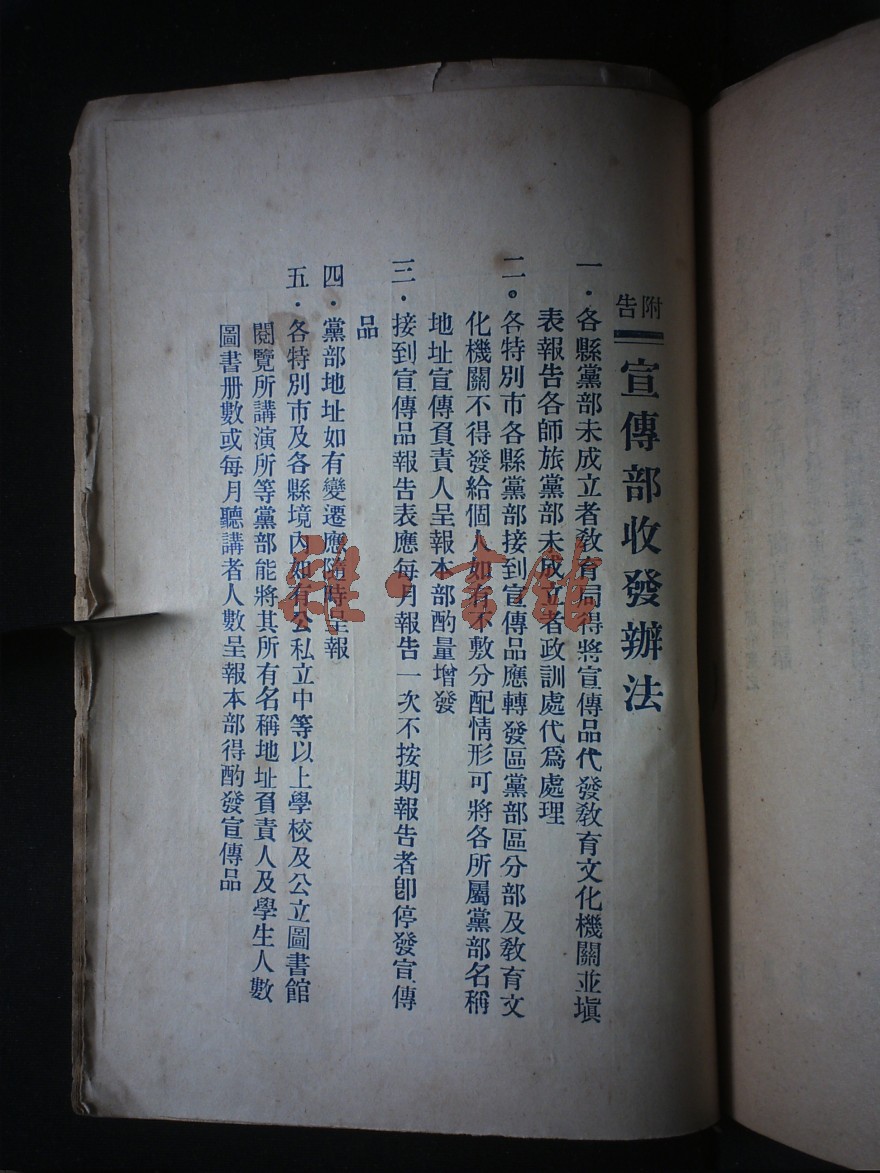 附告
宣傳部收發辦法
一．各縣黨部未成立者敎育局得將宣傳品代發敎育文化機關並塡
表報告各師旅黨部未成立者政訓處代爲處理
二。各特別市各縣黨部接到宣傳品應轉發區黨部區分部及敎育文
化機關不得發給個人如有不敷分配情形可將各所屬黨部名稱
地址宣傳負責人呈報本部酌量增發
三．接到宣傳品報告表應每月報告一次不按期報告者卽停發宣傳
品
四．黨部地址如有變遷應隨時呈報
五．各特別市及各縣境內如有公私立中等以上學校及公立圖書館
閱覽所講演所等黨部能將其所有名稱地址負責人及學生人數
圖書册數或每月聽講者人數呈報本部得酌發宣傳品
雜·書館